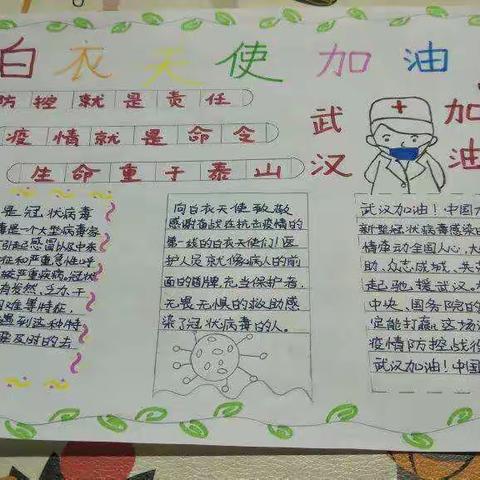 白衣天使加油
防控就是责任
疫情就是命令
生命重于泰山
武汉
加油
是冠状病毒
毒是一个大型病毒家
引起感冒以及中东
征和严重急性呼
较严重疾病,冠状
有发热、乏力、干
困难等特征,
遇到这种特
要及时的去
向白衣天使致敬
感谢奋战在抗击疫情的
第一线的白衣天使们!医
护人员就像病人的前
面的盾牌,充当保护者,
无畏无惧的救助感
染了冠状病毒的人。
武汉加油!中国加
新型冠状病毒感染的
情牵动全国人心,大
助、众志成城、共
起驰援武汉。大
中央、国务院的
定能打赢这场
疫情防控战役
武汉加油!中国